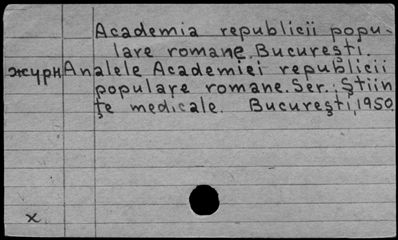 Academia republicii popu-
lare romane. Bucureşti.
журн Analele Academiei republicii
populare romane. Ser.: Ştiin
ţe medicale. Bucureşti, 1950
x